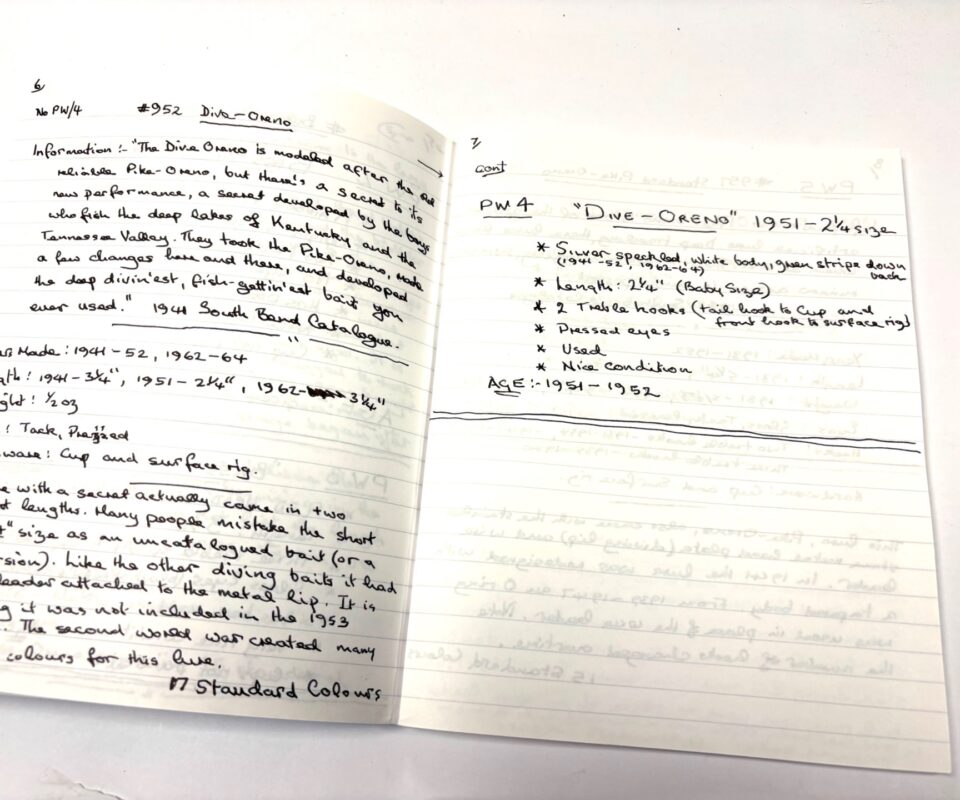 6
No PW/4 #952 Dive-Oreno
Information :- "The Dive Oreno is modeled after the old
reliable Pike-Oreno, but there's a secret to its
new performance, a secret developed by the boys
who fish the deep lakes of Kentucky and the
Tennessee Valley. They took the Pike-Oreno, made
a few changes here and there, and developed
the deep divin'est, fish-gettin'est bait you
ever used." 1941 South Bend Catalogue.
"
Made : 1941-52, 1962-64
: 1941-3¼", 1951-2¼", 1962- 3¼"
: ½ oz
: Tack, Pressed
: Cup and surface rig.
with a secret actually came in two
lengths. Many people mistake the short
size as an uncatalogued bait (or a
Like the other diving baits it had
leader attached to the metal lip. It is
it was not included in the 1953
The second world war created many
colours for this lure.
17 Standard Colours
7
cont
PW4 "DIVE-ORENO" 1951-2¼ size
* Silver speckled, white body, green stripe down
back
(1941-52, 1962-64)
* Length : 2¼" (Baby Size)
* 2 Treble hooks (tail hook to Cup and
front hook to surface rig)
* Pressed eyes
* Used
* Nice condition
AGE :- 1951-1952